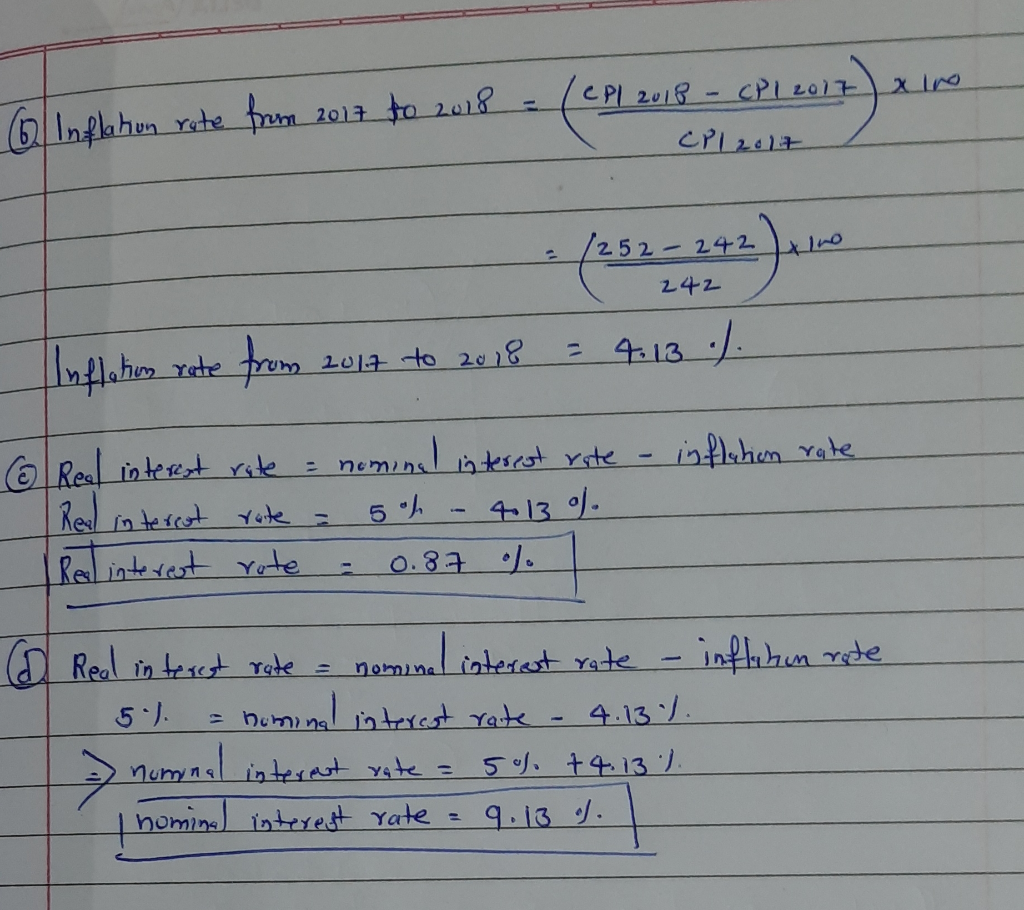 (b) Inflation rate from 2017 to 2018 = (CPI 2018 - CPI 2017 / CPI 2017) x 100
= (252 - 242 / 242) x 100
Inflation rate from 2017 to 2018 = 4.13 %.
(c) Real interest rate = nominal interest rate - inflation rate
Real interest rate = 5 % - 4.13 %.
Real interest rate = 0.87 %
(d) Real interest rate = nominal interest rate - inflation rate
5 %. = nominal interest rate - 4.13 %.
=> nominal interest rate = 5 %. + 4.13 %.
nominal interest rate = 9.13 %.